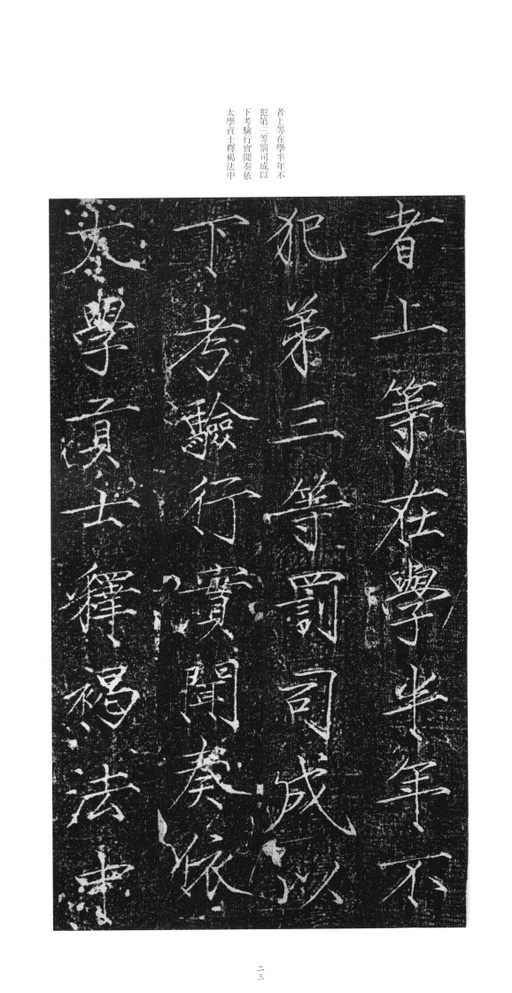 者上等在學半年不
犯第三等罰司成以
下考驗行實聞奏依
太學貢士釋褐法中
者上等在學半年不
犯弟三等罰司成以
下考驗行實聞奏依
太學貢士釋褐法中
二三